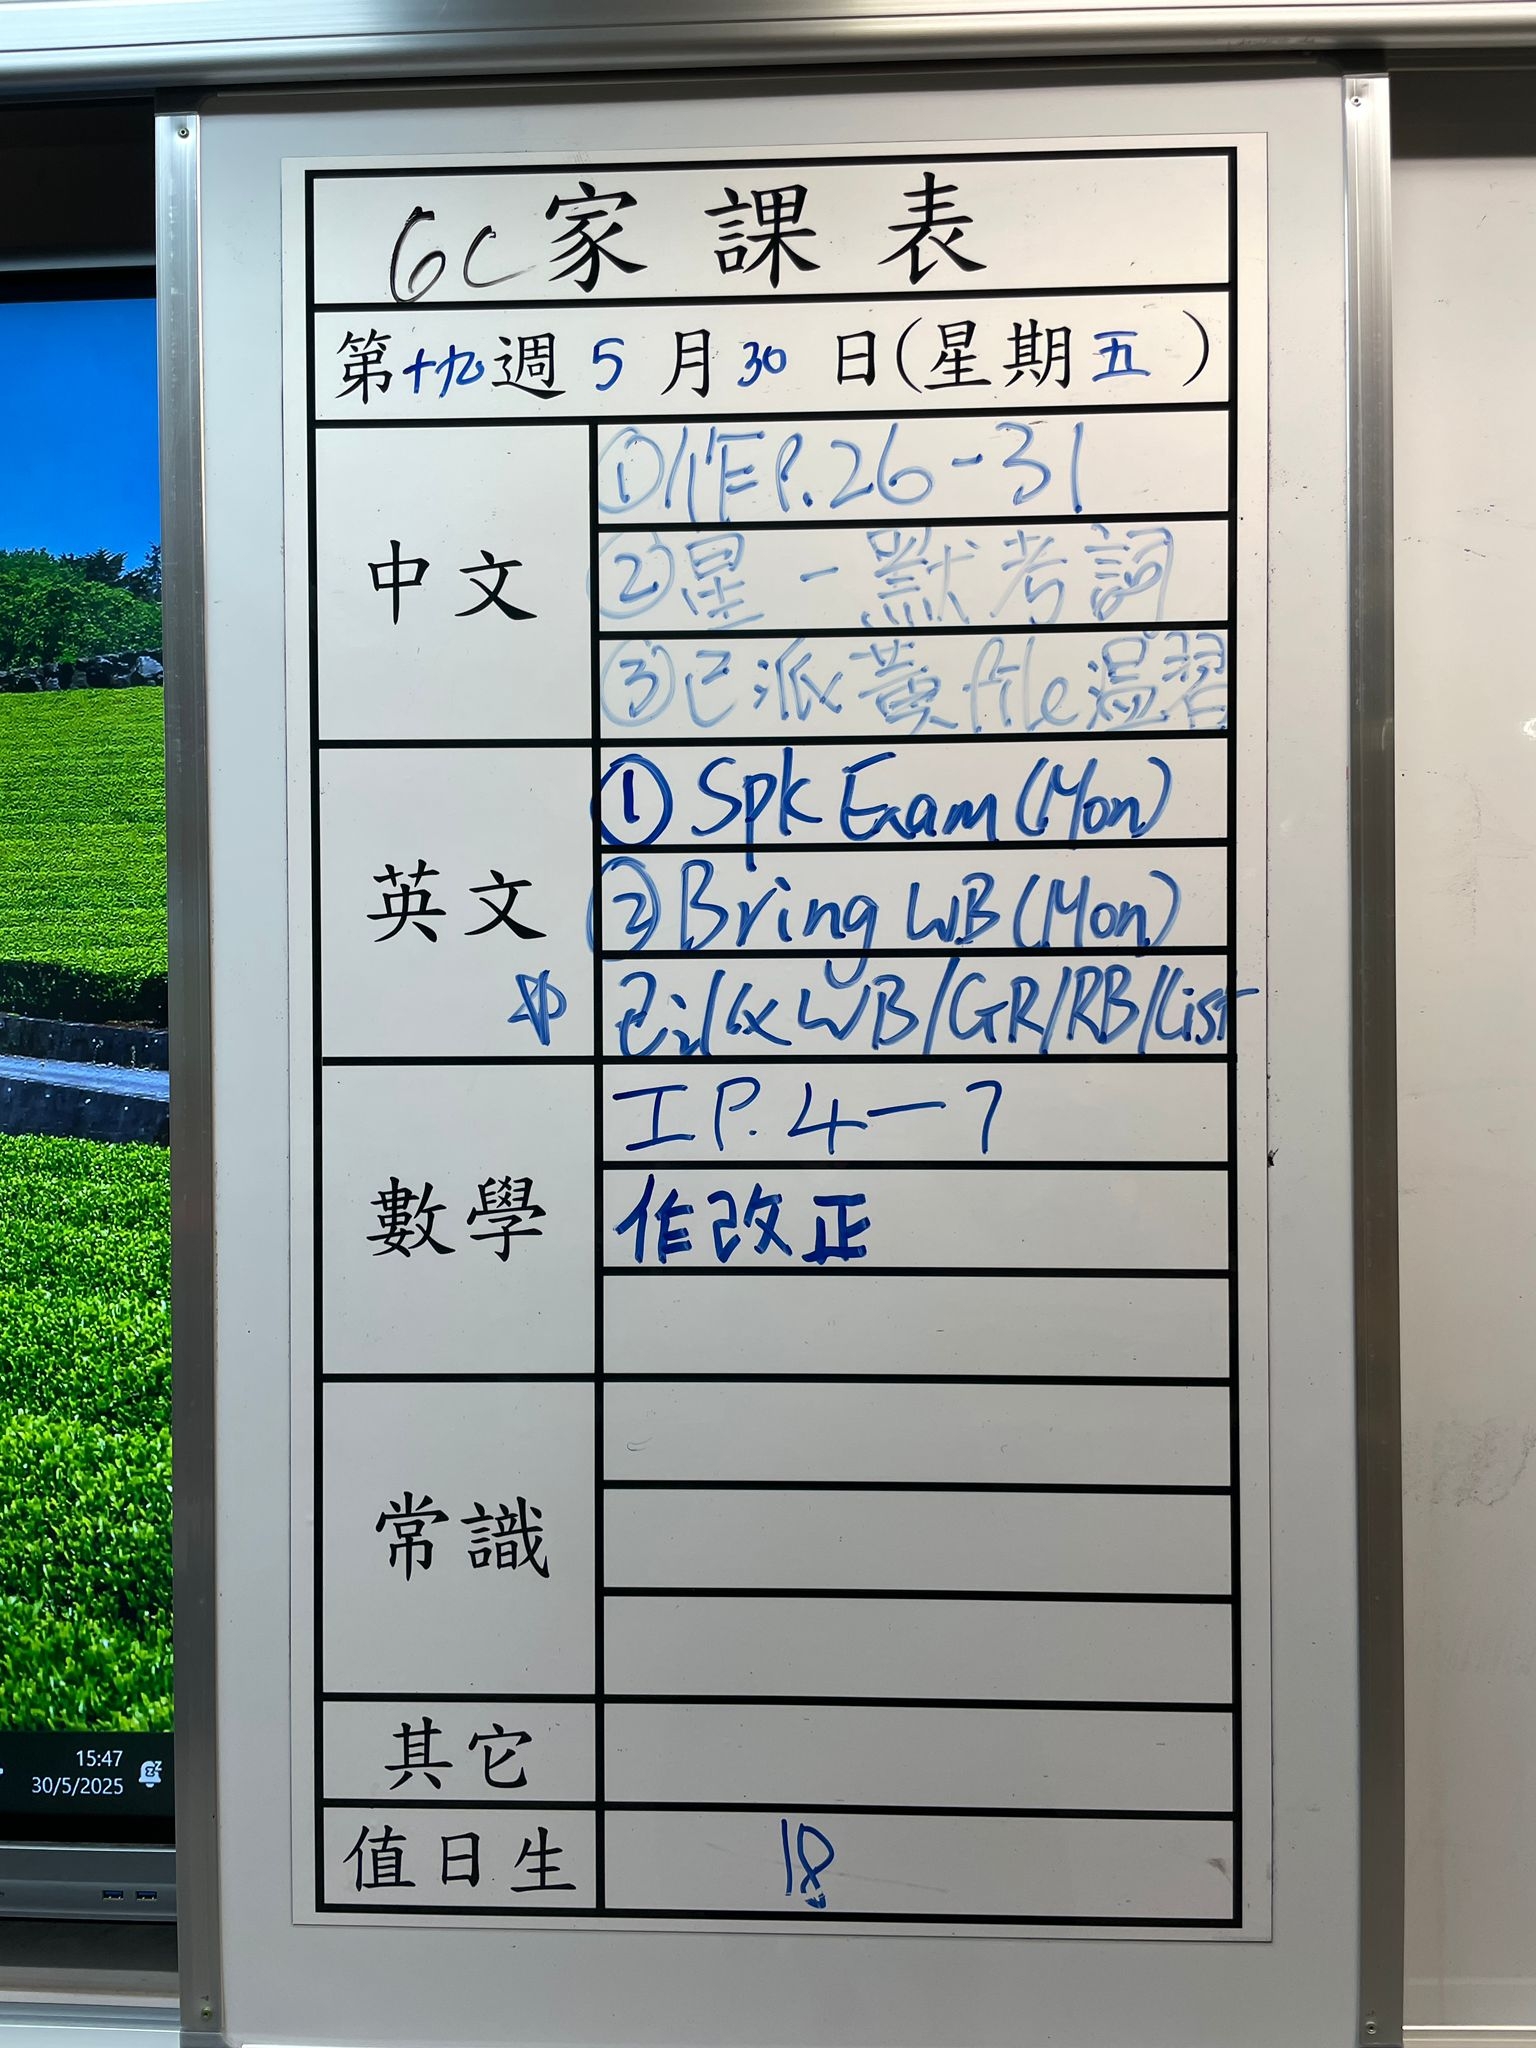 6C家課表
第十九週5月30日(星期五)
中文
①作P.26-31
②星一默考詞
③已派黃file溫習
英文
①Spk Exam(Mon)
②Bring WB(Mon)
WB/GR/RB/List
數學
工P.4-7
作改正
常識
其它
值日生
18
15:47
30/5/2025